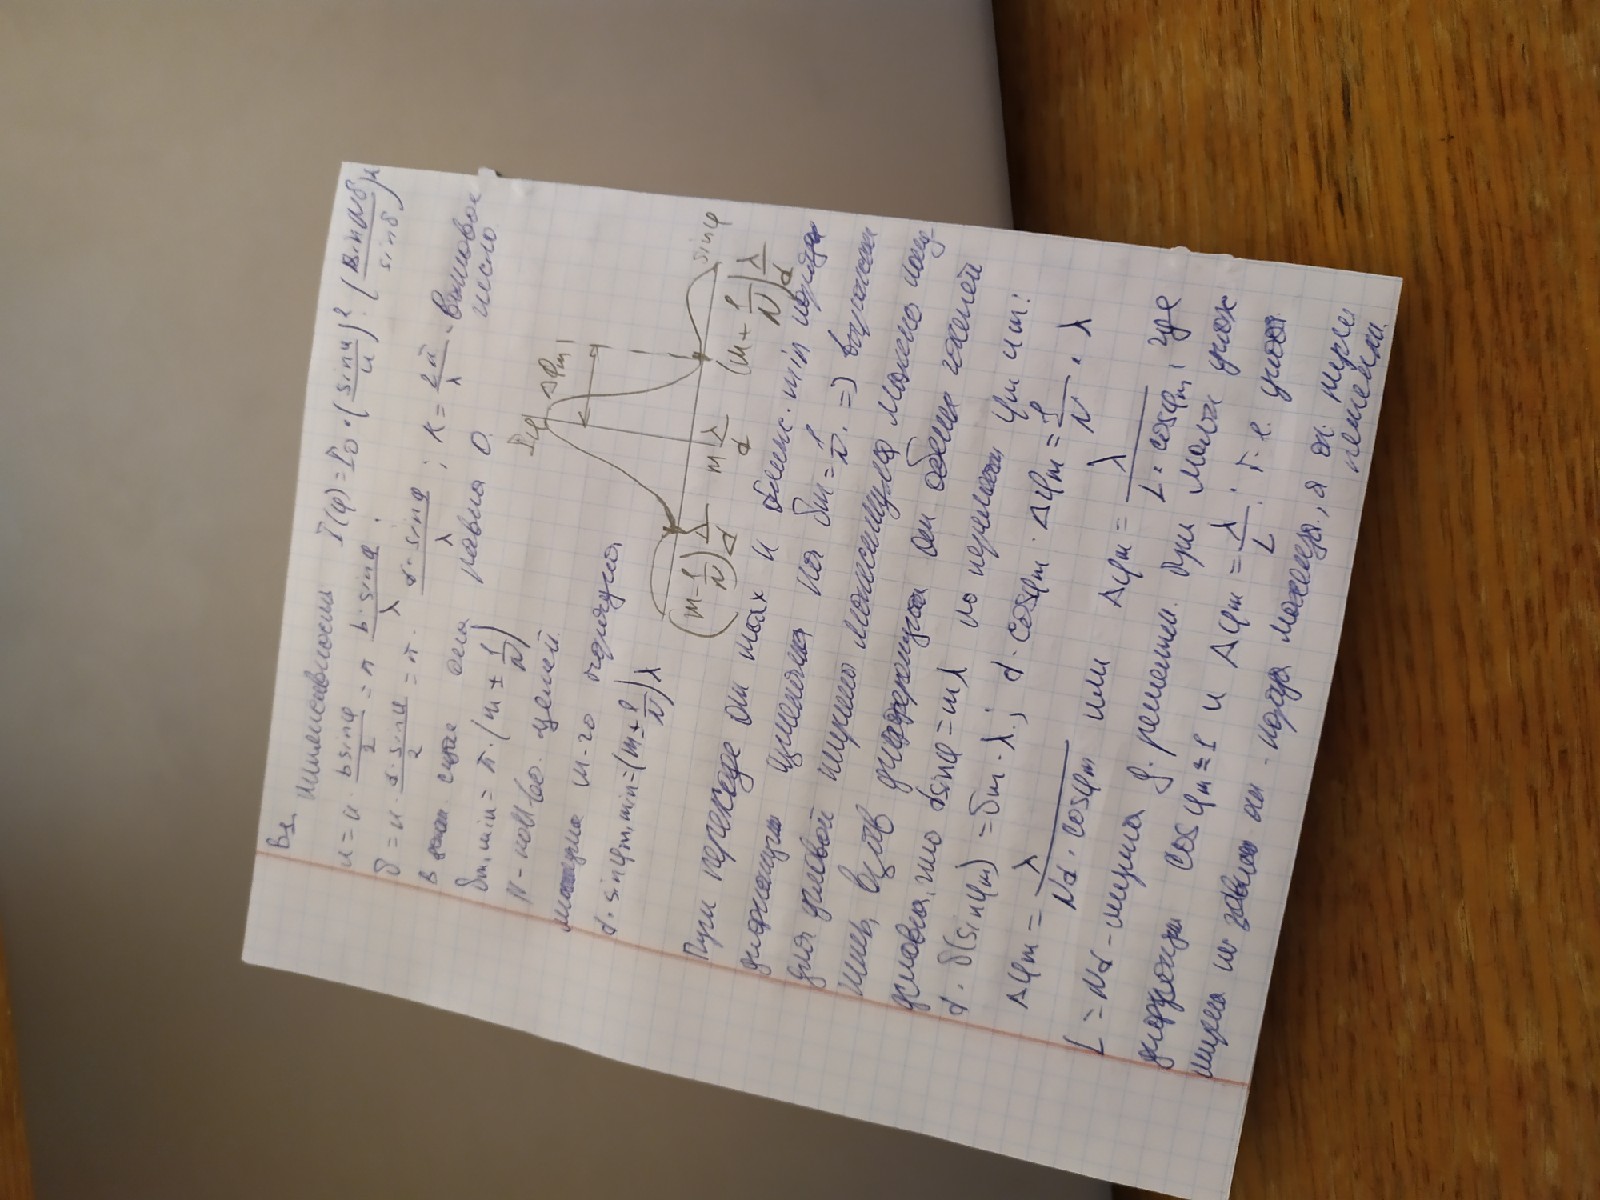 В1.
интенсивности I(φ)=I₀·(sin u/u)²·(sin Nδ/sin δ)²
u=к·bsinφ/2=π b·sinφ/λ.
δ=к·d·sinφ/2=π·d·sinφ/λ; K=2π/λ-волновое число
в сл. она равна 0.
δm,min=π·(m±1/N)
N-кол-во щелей
m-го порядка
d·sinφm,min=(m±1/N)λ
Iφ
Δφm
(m-1/N)λ/d
m λ/d
(m+1/N)λ/d
sinφ
При переходе от max к ближ. min порядок
дифракции на δm=1/N. =>
для угловой ширины максимума можно полу
чить, взяв дифференциал от обеих частей
условия, что dsinφ=mλ по φm и m:
d·δ(sinφm)=δm·λ; d·cosφm·Δφm=1/N·λ
Δφm=λ/Nd·cosφm или Δφm=λ/L·cosφm, где
L=Nd-ширина д. решетки. При малы углах
дифракции cosφm≈1 и Δφm=λ/L; т.е.
ширина не завис от а от
решетки.